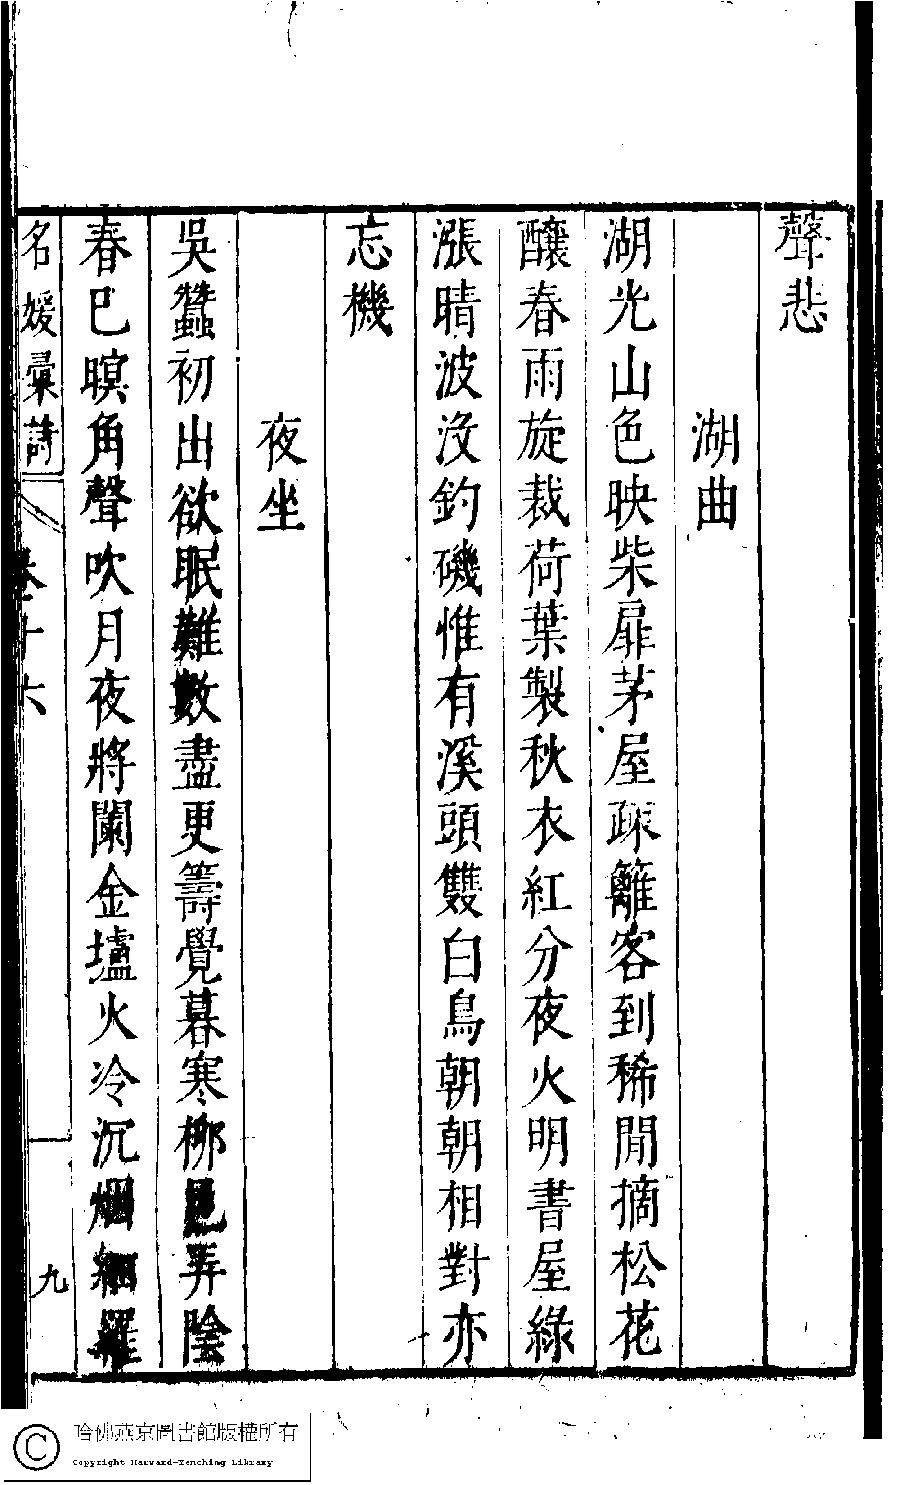 聲悲
湖曲
湖光山色映柴扉茅屋疎籬客到稀閒摘松花
釀春雨旋裁荷葉製秋衣紅分夜火明書屋綠
漲晴波沒釣磯惟有溪頭雙白鳥朝朝相對亦
忘機
夜坐
吳蠶初出欲眠難數盡更籌覺暮寒柳色弄陰
春巳暝角聲吹月夜將闌金壚火冷沉烟細羅
名媛彙詩
卷十六
九
哈佛燕京圖書館版權所有
Copyright Harvard-Yenching Library